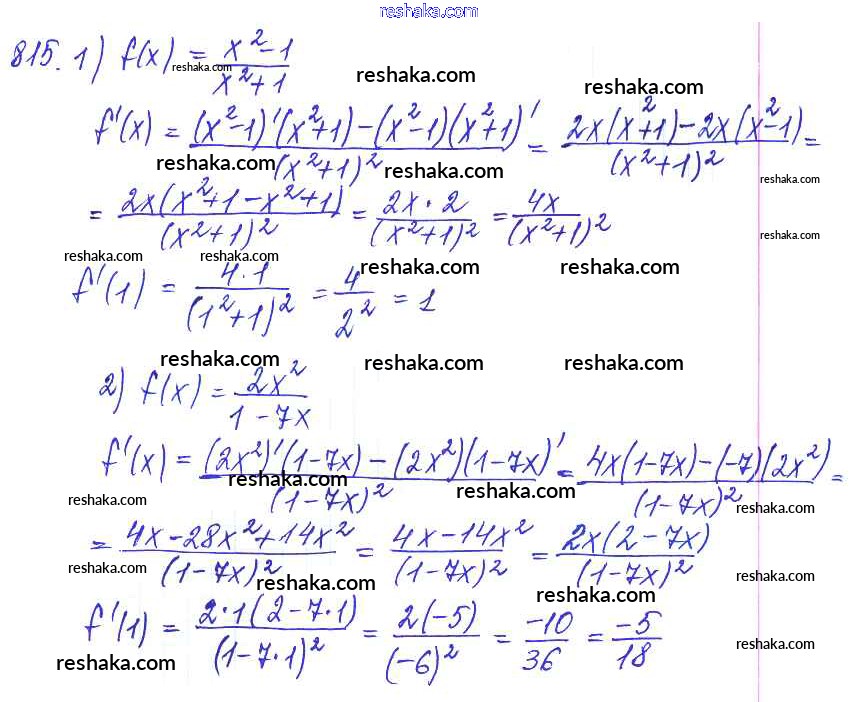 reshaka.com
815. 1) f(x) = (x² - 1)/(x² + 1)
reshaka.com reshaka.com reshaka.com
f'(x) = ((x² - 1)'(x² + 1) - (x² - 1)(x² + 1)')/(x² + 1)² = (2x(x² + 1) - 2x(x² - 1))/(x² + 1)² =
reshaka.com reshaka.com reshaka.com reshaka.com
= (2x(x² + 1 - x² + 1))/(x² + 1)² = (2x · 2)/(x² + 1)² = 4x/(x² + 1)²
reshaka.com
reshaka.com reshaka.com reshaka.com reshaka.com
f'(1) = (4 · 1)/(1² + 1)² = 4/2² = 1
reshaka.com reshaka.com reshaka.com
2) f(x) = 2x²/(1 - 7x)
f'(x) = ((2x²)'(1 - 7x) - (2x²)(1 - 7x)')/(1 - 7x)² = (4x(1 - 7x) - (-7)(2x²))/(1 - 7x)² =
reshaka.com reshaka.com reshaka.com reshaka.com
= (4x - 28x² + 14x²)/(1 - 7x)² = (4x - 14x²)/(1 - 7x)² = (2x(2 - 7x))/(1 - 7x)²
reshaka.com reshaka.com reshaka.com reshaka.com
f'(1) = (2 · 1(2 - 7 · 1))/(1 - 7 · 1)² = (2(-5))/(-6)² = -10/36 = -5/18
reshaka.com reshaka.com